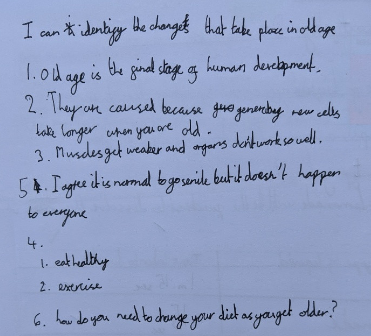 I can identify the changes that take place in old age
1. Old age is the final stage of human development.
2. They are caused because generating new cells
take longer when you are old.
3. Muscles get weaker and organs don't work so well.
5. I agree it is normal to go senile but it doesn't happen
to everyone
4.
1. eat healthy
2. exercise
6. how do you need to change your diet as you get older?